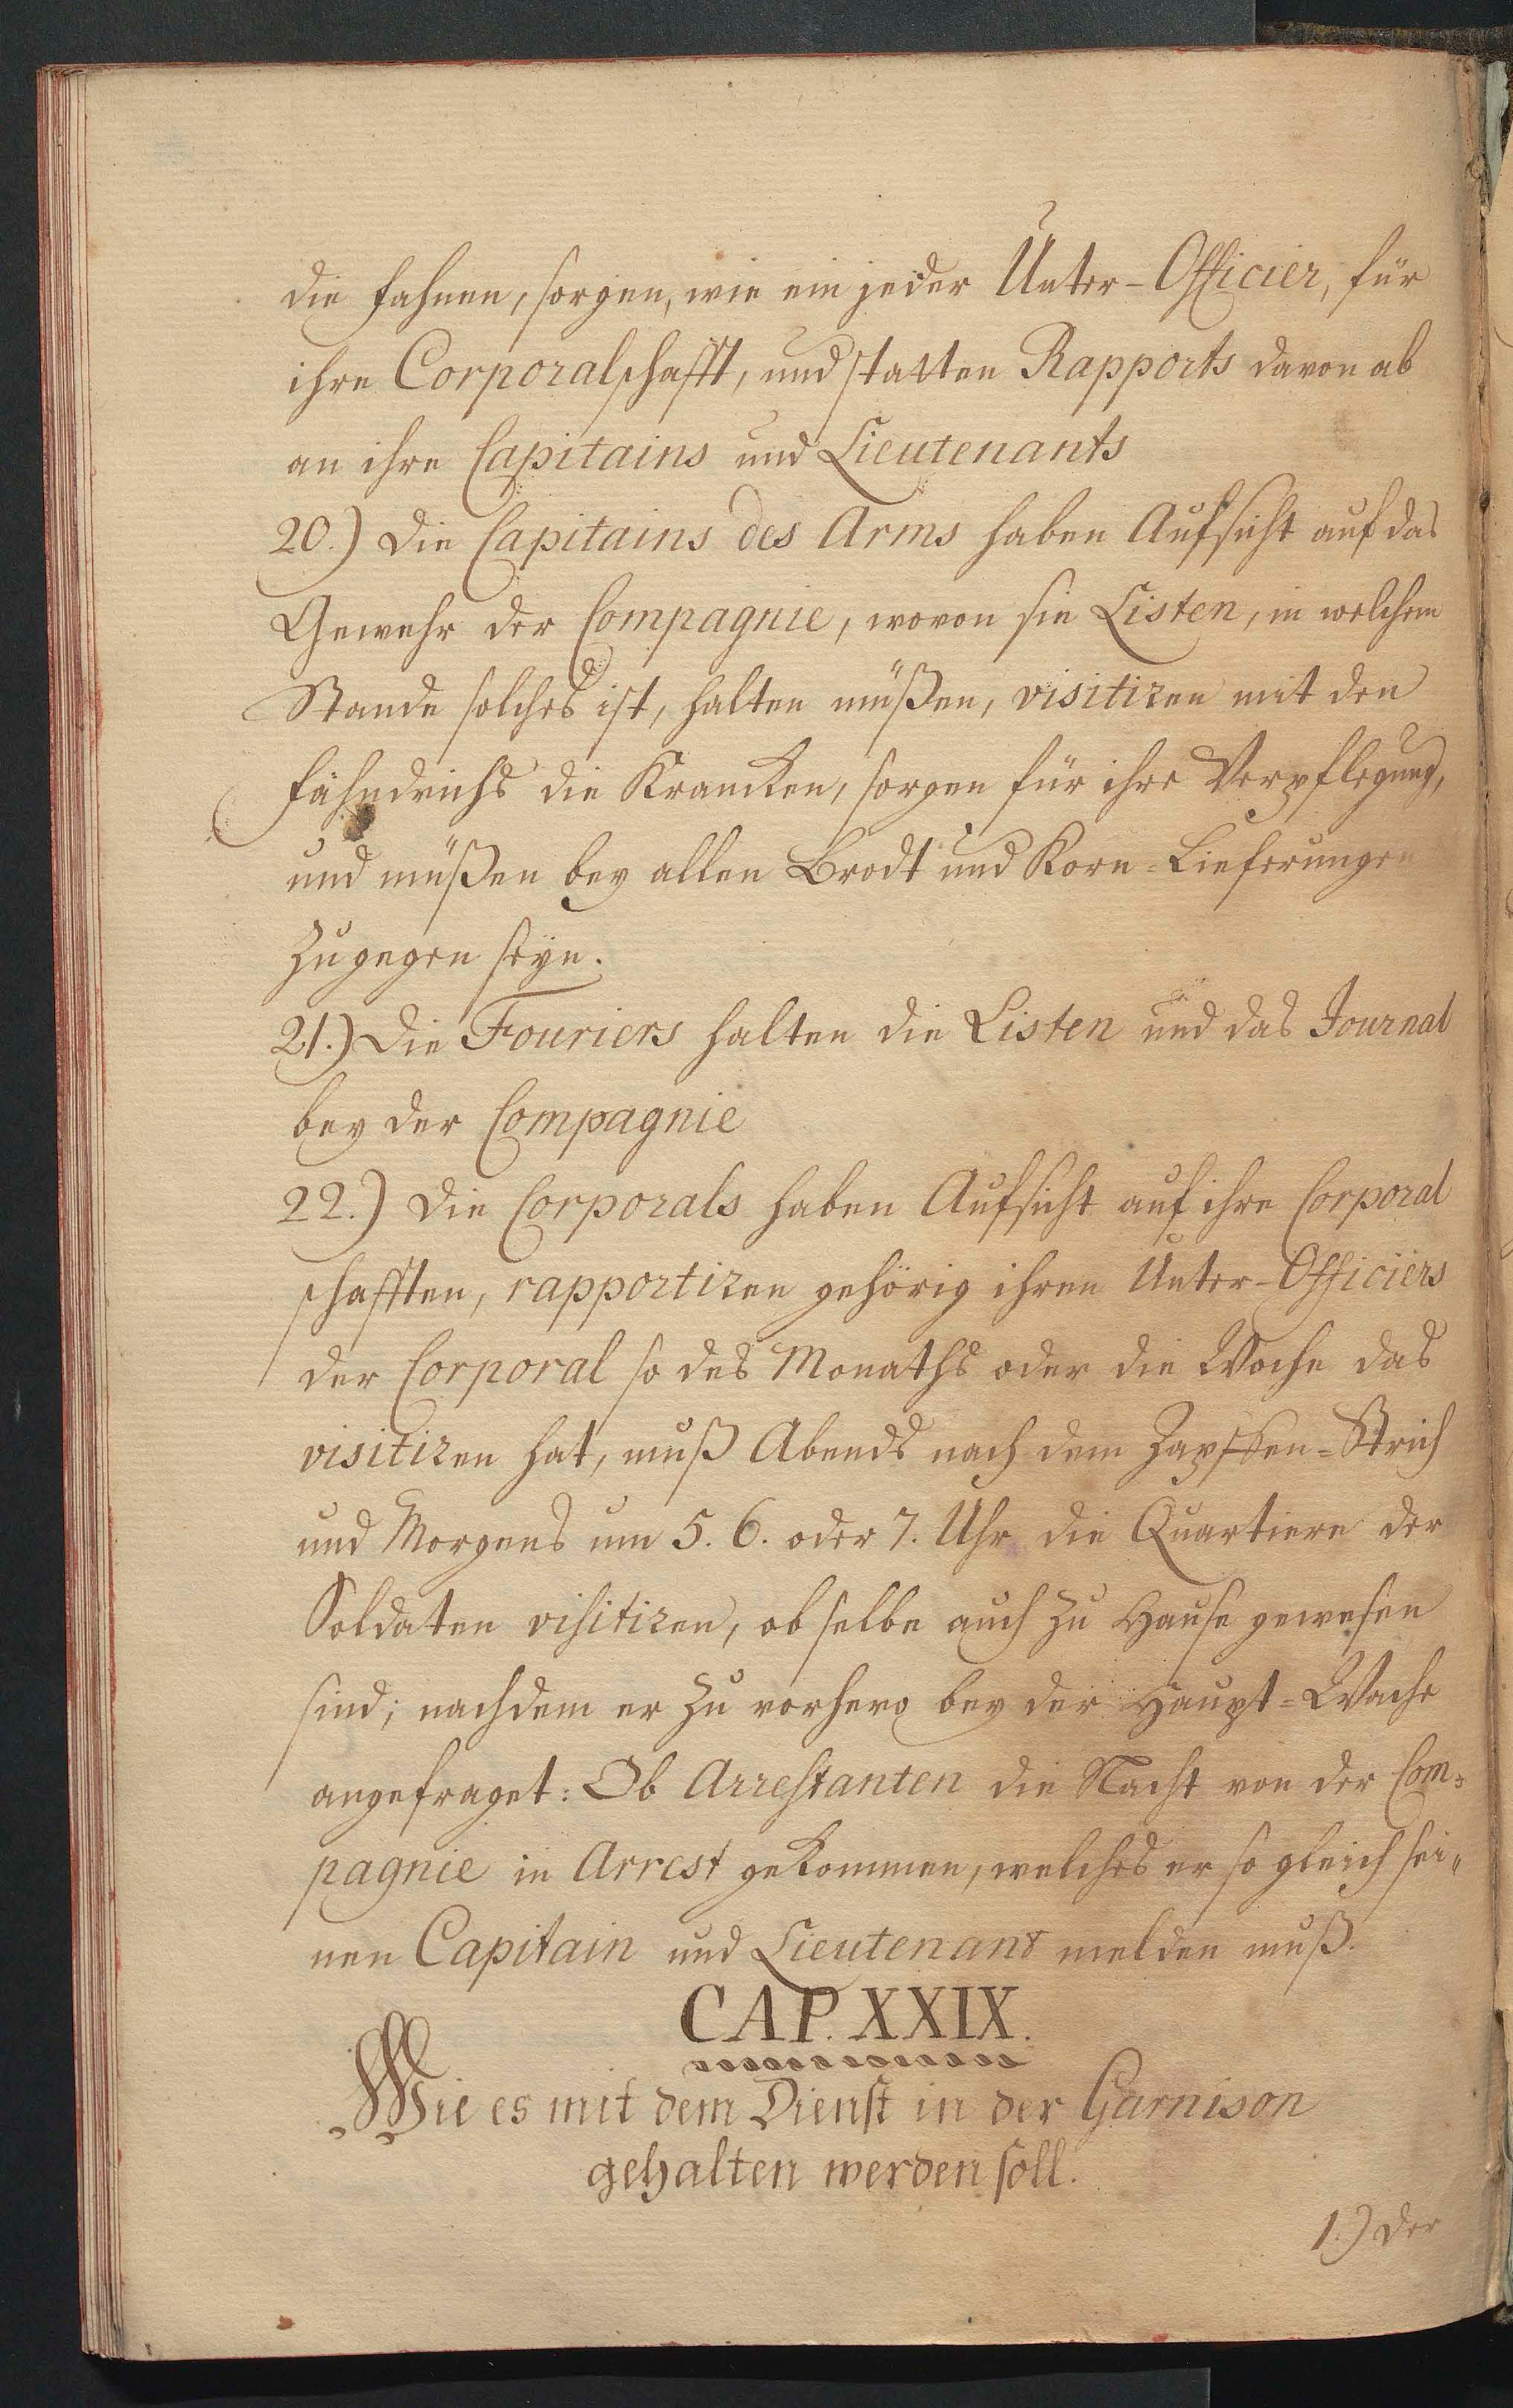 die Fahnen, sorgen, wie ein jeder Unter-Officier, für
ihre Corporalschafft, und statten Rapports davon ab
an ihre Capitains und Lieutenants
20.) Die Capitains des Arms haben Aufsicht auf das
Gewehr der Compagnie, wovon sie Listen, in welchem
Stande solches ist, halten müßen, visitiren mit den
Fähndrichs die Krancken, sorgen für ihre Verpflegung,
und müßen bey allen Brodt und Korn-Lieferungen
zugegen seyn.
21.) Die Fouriers halten die Listen und das Journal
bey der Compagnie
22.) Die Corporals haben Aufsicht auf ihre Corporal
schafften, rapportiren gehörig ihren Unter-Officiers
der Corporal so des Monaths oder die Woche das
visitiren hat, muß Abends nach dem Zapffen-Strich
und Morgens um 5. 6. oder 7. Uhr die Quartiere der
Soldaten visitiren, ob selbe auch zu Hause gewesen
sind; nachdem er zu vorhero bey der Haupt-Wache
angefraget: Ob Arrestanten die Nacht von der Com-
pagnie in Arrest gekommen, welches er so gleich sei-
nen Capitain und Lieutenant melden muß.
CAP. XXIX.
Wie es mit dem Dienst in der Garnison
gehalten werden soll.
1.) Der